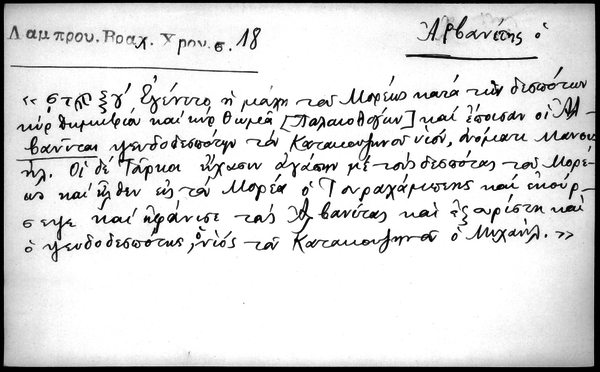 Λαμπρου. Βραχ. Χρον. σ. 18
Ἀρβανίτης ὁ
« στϡξγ' Ἐγένετο ἡ μάχη τοῦ Μορέως κατὰ τῶν δεσπότων
κὺρ Δημητρίου καὶ κὺρ Θωμᾶ [Παλαιολόγων] καὶ ἐποίησαν οἱ Ἀλ
βανῖται ψευδοδεσπότην τὸν Κατακουζηνοῦ υἱόν, ὀνόματι Μανου
ήλ. Οἱ δὲ Τοῦρκοι εἴχασιν ἀγάπην μὲ τοὺς δεσπότας τοῦ Μορέ-
ως καὶ ἦλθεν εἰς τὸν Μορέα ὁ Τουραχάμπεης καὶ ἐκούρ-
σεψε καὶ ἠφάνισε τοὺς Ἀλβανίτας καὶ ἐξωρίστη καὶ
ὁ ψευδοδεσπότης, ὁ υἱὸς τοῦ Κατακουζηνοῦ ὁ Μιχαήλ. »